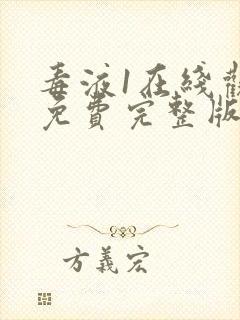 毒液1在綫觀
免費完整版
方義宏